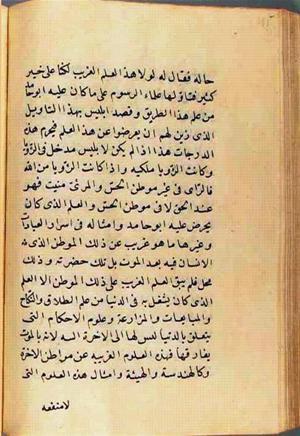 حاله فقال له لولا هذا العلم الغريب لكنا على خير
كثير فتاولها علماء الرسوم على ما كان عليه ابو حامد
من علم هذا الطريق وقصد ابليس بهذا التاويل
الذى زين لهم ان يعرضوا عن هذا العلم فيحرموا هذه
الدرجات هذا اذا لم يكن لابليس مدخل فى الرؤيا
وكانت الرؤيا ملكيه واذا كانت الرؤيا من الله
فالرائى فى غير موطن الحس والمرئى ميت فهو
عند الحق لا فى موطن الحس والعلم الذى كان
يحرض عليه ابو حامد وامثاله فى اسرار العبادات
وغيرها ما هو غريب عن ذلك الموطن الذى
الانسان فيه بعد الموت بل تلك حضرته وذلك
محله فلم يبق العلم الغريب على ذلك الموطن الا العلم
الذى كان يشتغل به فى الدنيا من علم الطلاق والنكاح
والمبايعات والمزارعة وعلوم الاحكام التى
يتعلق بالدنيا ليس لها الى الاخرة البته لانه بالموت
يفارقها فهذه العلوم الغريبه عن مواطن الاخرة
وكالهندسة والهيئة وامثال هذه العلوم التى
لا منفعه